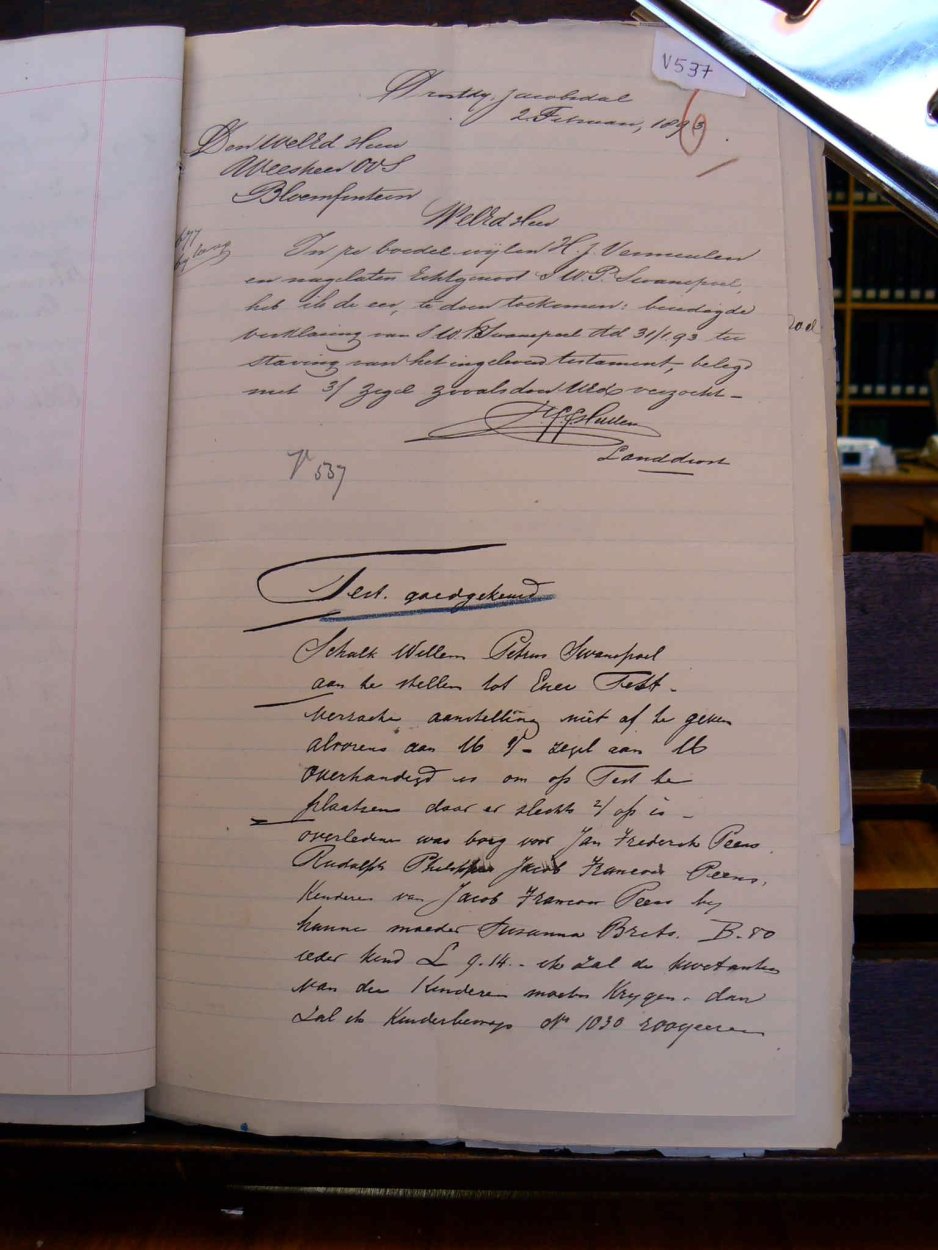 V537
Drostdy, Jacobsdal
2 Februari, 1893.
Den WelEd Heer
Weesheer OVS
Bloemfontein
WelEd Heer
In re boedel wijlen H. J. Vermeulen
en nagelaten Echtgenoot S. W. P. Swanepoel,
heb ik de eer, te doen toekomen: beeedigde
verklaring van S W P Swanepoel dd 31/1.93 ter
staving van het ingeleverd testament, belegd
met 3/ zegel zooals door UEd verzocht —
Landdrost
V 537
Test. goedgekeurd
Schalk Willem Petrus Swanepoel
aan te stellen tot Exec Test —
verzoeke aanstelling niet af te geven
alvorens aan M zegel aan M
overhandigd is om op Test te
plaatsen daar er slechts 2/ op is —
overledene was borg voor Jan Frederik Peens.
Rudolph Jacob Francois Peens,
Kinderen van Jacob Francois Peens by
hunne moeder Susanna Brits. B. 80
ieder kind £ 9.14 — ik zal de kwitanties
van die Kinderen moeten Krygen. dan
zal ik Kinderbewys No 1030 rooyeeren